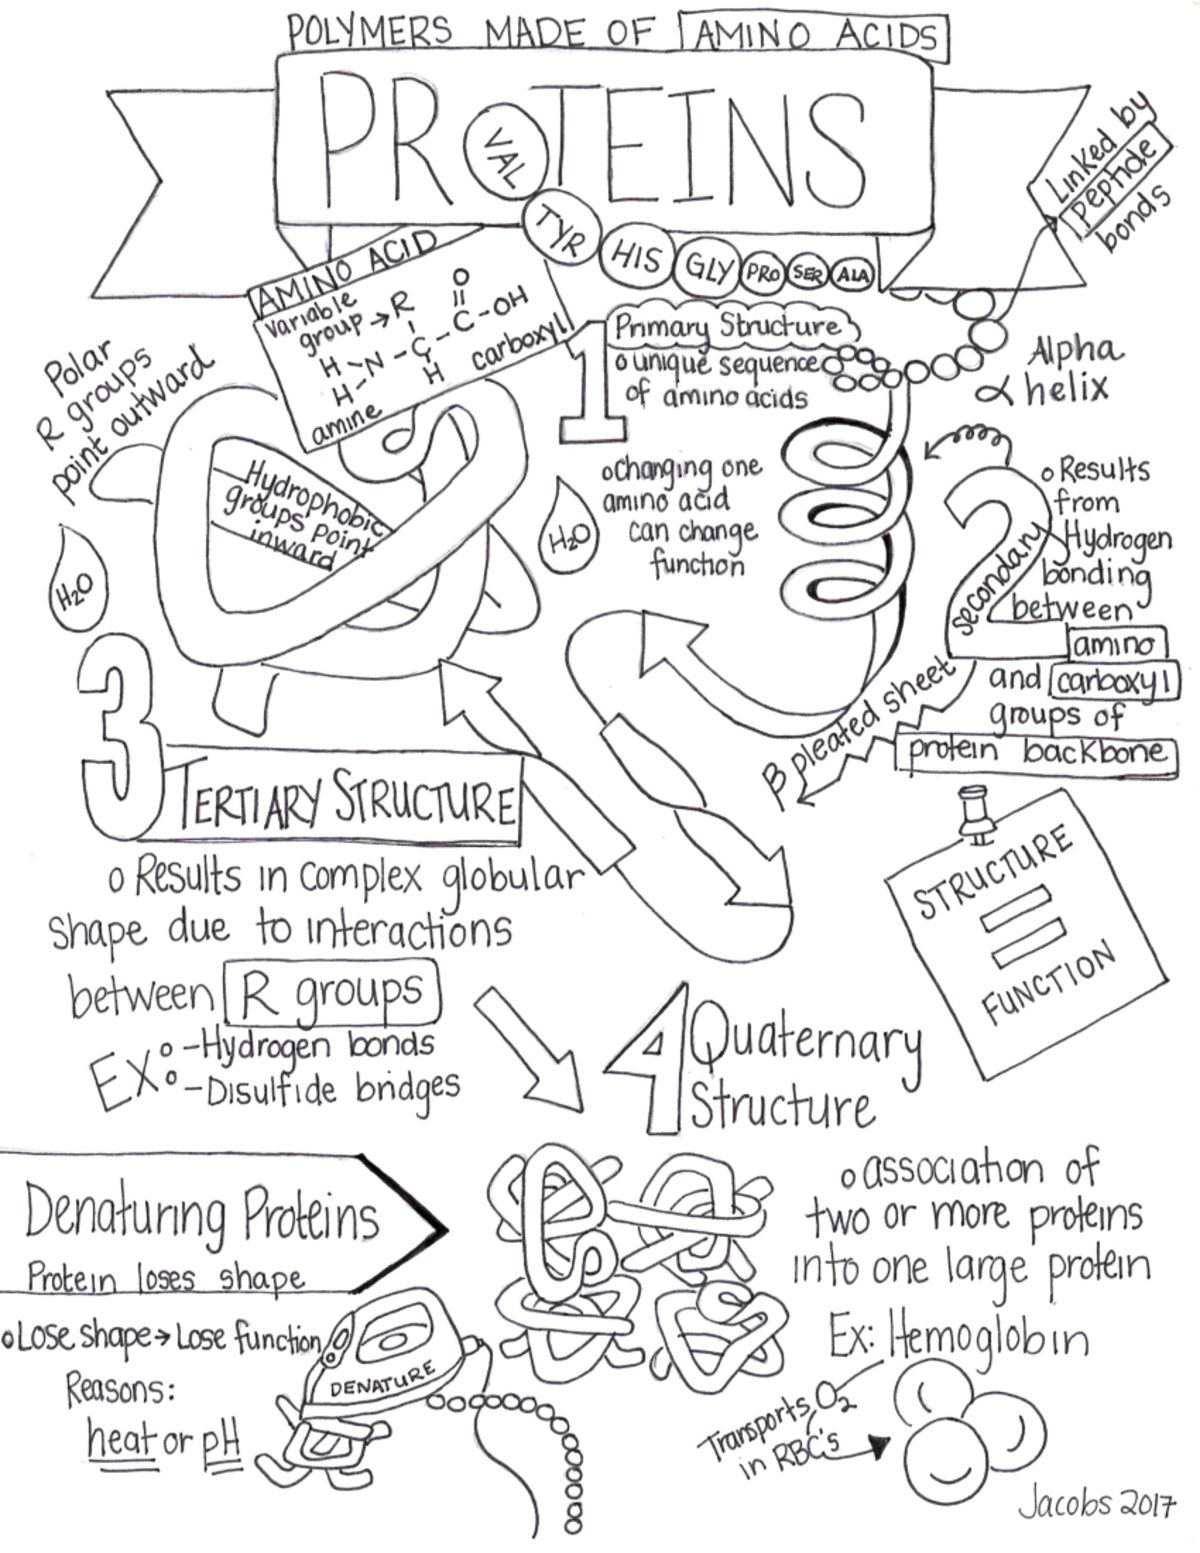 POLYMERS MADE OF AMINO ACIDS
PROTEINS
VAL
TYR
HIS
GLY
PRO
SER
ALA
Linked by
peptide
bonds
AMINO ACID
Variable
group → R
O
H-N-C-C-OH
H
H
amine
carboxyl
1
Primary Structure
o unique sequence
of amino acids
o changing one
amino acid
can change
function
Alpha
α helix
2
secondary
o Results
from
Hydrogen
bonding
between
amino
and carboxyl
groups of
protein backbone
β pleated sheet
Polar
R groups
point outward
Hydrophobic
groups point
inward
H2O
H2O
3
TERTIARY STRUCTURE
o Results in complex globular
shape due to interactions
between R groups
EX: -Hydrogen bonds
-Disulfide bridges
STRUCTURE
=
FUNCTION
4
Quaternary
Structure
o association of
two or more proteins
into one large protein
Ex: Hemoglobin
Transports O2
in RBC's
Denaturing Proteins
Protein loses shape
o Lose shape → Lose function
Reasons:
heat or pH
DENATURE
Jacobs 2017